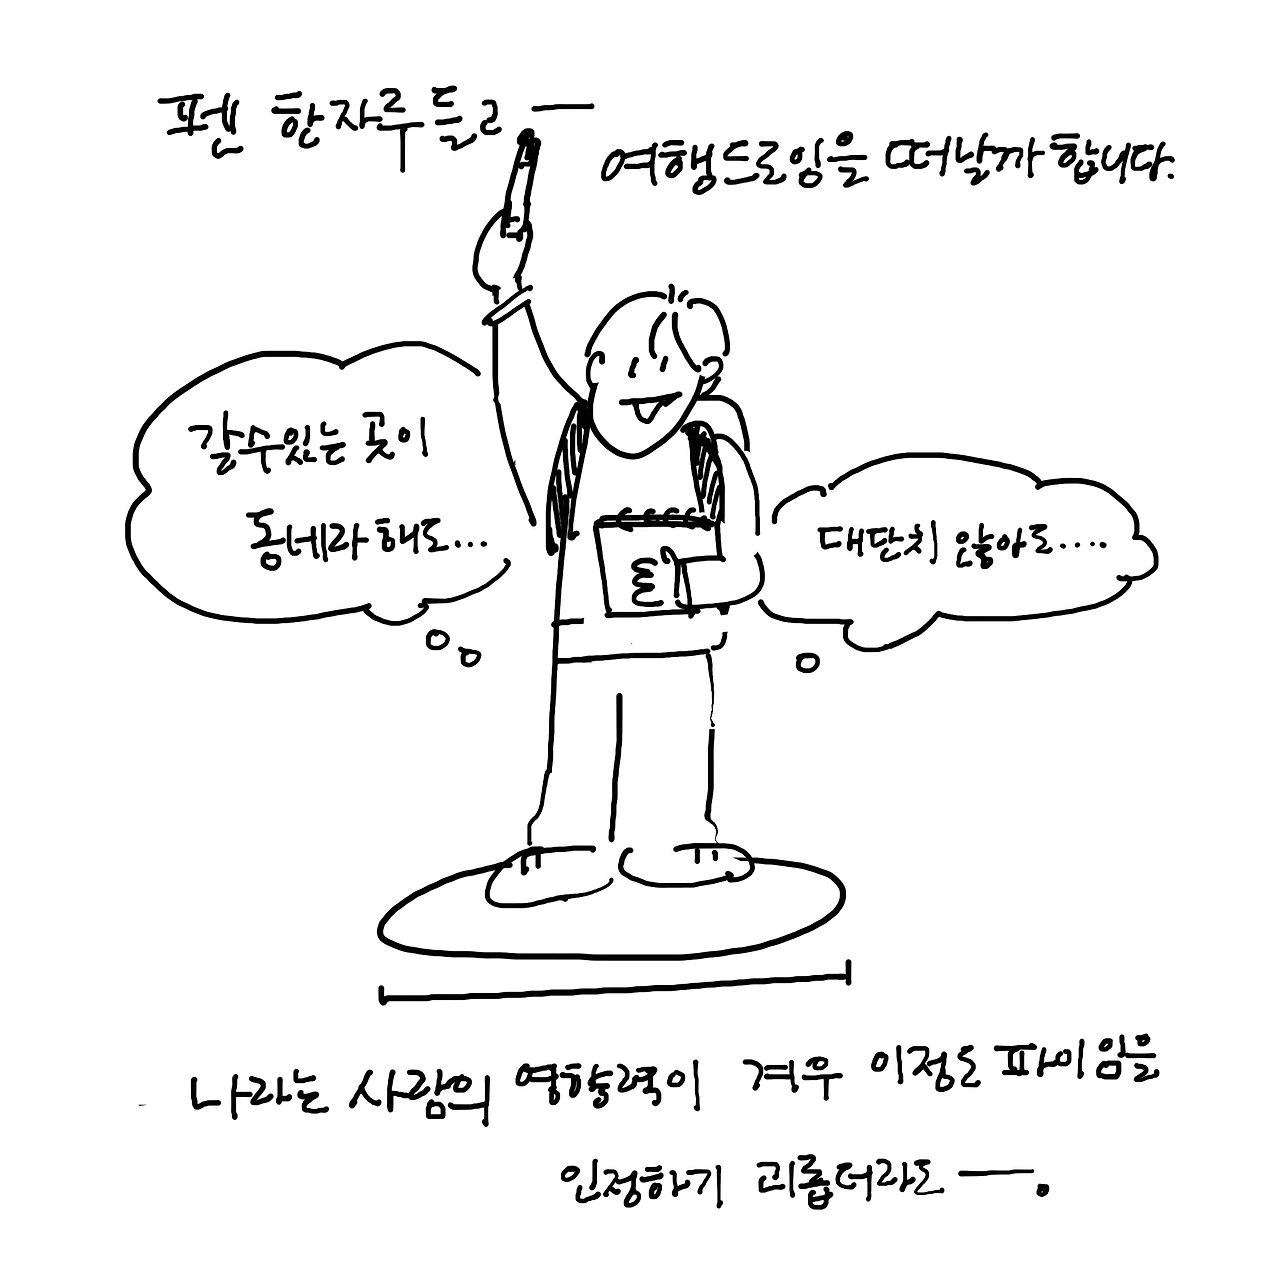 펜 한자루 들고 —
여행드로잉을 떠날까 합니다.
갈수있는 곳이
동네라 해도...
대단치 않아도....
나라는 사람의 영향력이 겨우 이정도 파이임을
인정하기 괴롭더라도 —.